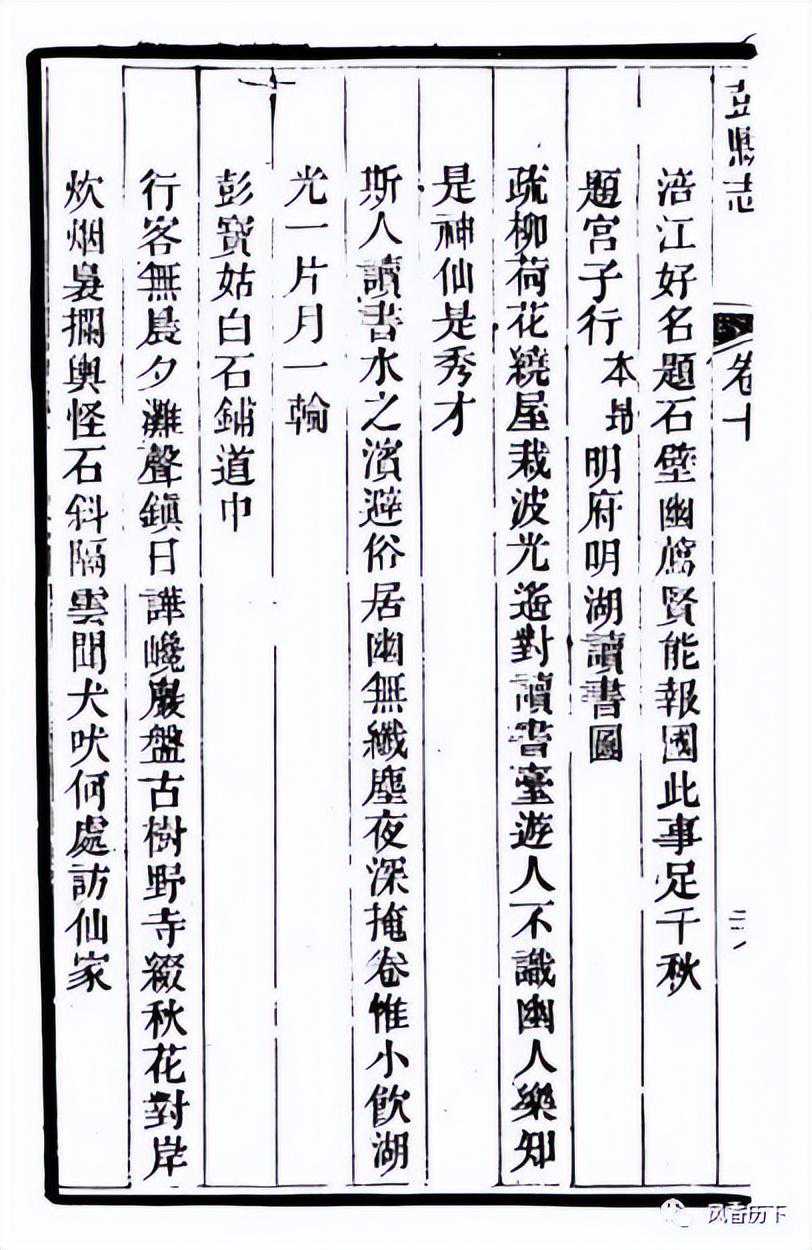 縣志
卷十
涪江好名題石壁幽薦賢能報國此事足千秋
題宮子行本昂明府明湖讀書圖
疏柳荷花繞屋栽波光遙對讀書臺遊人不識幽人樂知
是神仙是秀才
斯人讀書水之濱避俗居幽無纖塵夜深掩卷惟小飲湖
光一片月一輪
彭寶姑白石鋪道中
行客無晨夕灘聲鎮日譁巉巖盤古樹野寺綴秋花對岸
炊烟裊攔輿怪石斜隔雲聞犬吠何處訪仙家
风香历下